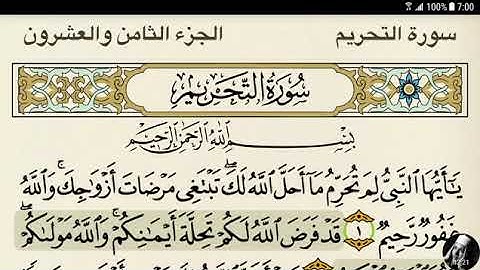 7:00
سورة التحريم الجزء الثامن والعشرون
سُورَةُ التَّحْرِيمِ
بِسْمِ اللَّهِ الرَّحْمَٰنِ الرَّحِيمِ
يَٰٓأَيُّهَا ٱلنَّبِىُّ لِمَ تُحَرِّمُ مَآ أَحَلَّ ٱللَّهُ لَكَ ۖ تَبْتَغِى مَرْضَاتَ أَزْوَٰجِكَ ۚ وَٱللَّهُ
غَفُورٌ رَّحِيمٌ ١ قَدْ فَرَضَ ٱللَّهُ لَكُمْ تَحِلَّةَ أَيْمَٰنِكُمْ ۚ وَٱللَّهُ مَوْلَىٰكُمْ ۖ